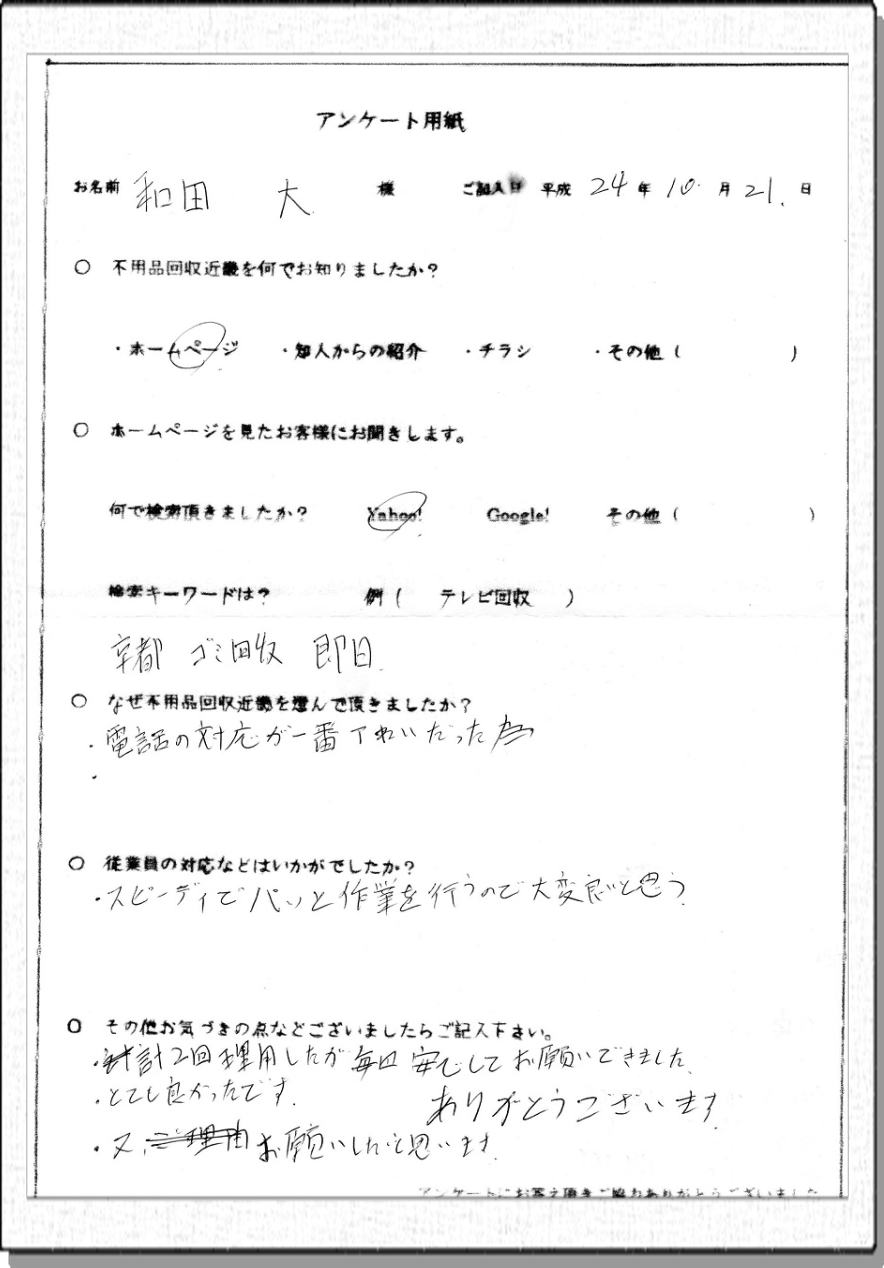 アンケート用紙
お名前 和田 大 様 ご記入日 平成 24 年 10 月 21 日
○ 不用品回収近畿を何でお知りましたか?
・ホームページ ・知人からの紹介 ・チラシ ・その他 ( )
○ ホームページを見たお客様にお聞きします。
何で検索頂きましたか? Yahoo! Google! その他 ( )
検索キーワードは? 例 ( テレビ回収 )
京都 ゴミ回収 即日
○ なぜ不用品回収近畿を選んで頂きましたか?
・電話の対応が一番ていねいだった為
・
○ 従業員の対応などはいかがでしたか?
・スピーディでパッと作業を行うので大変良いと思う
○ その他お気づきの点などございましたらご記入下さい。
・計2回理用したが毎回安心してお願いできました
・とても良かったです.
ありがとうございます
・又、お願いしたいと思います
アンケートにお答え頂きご協力ありがとうございました